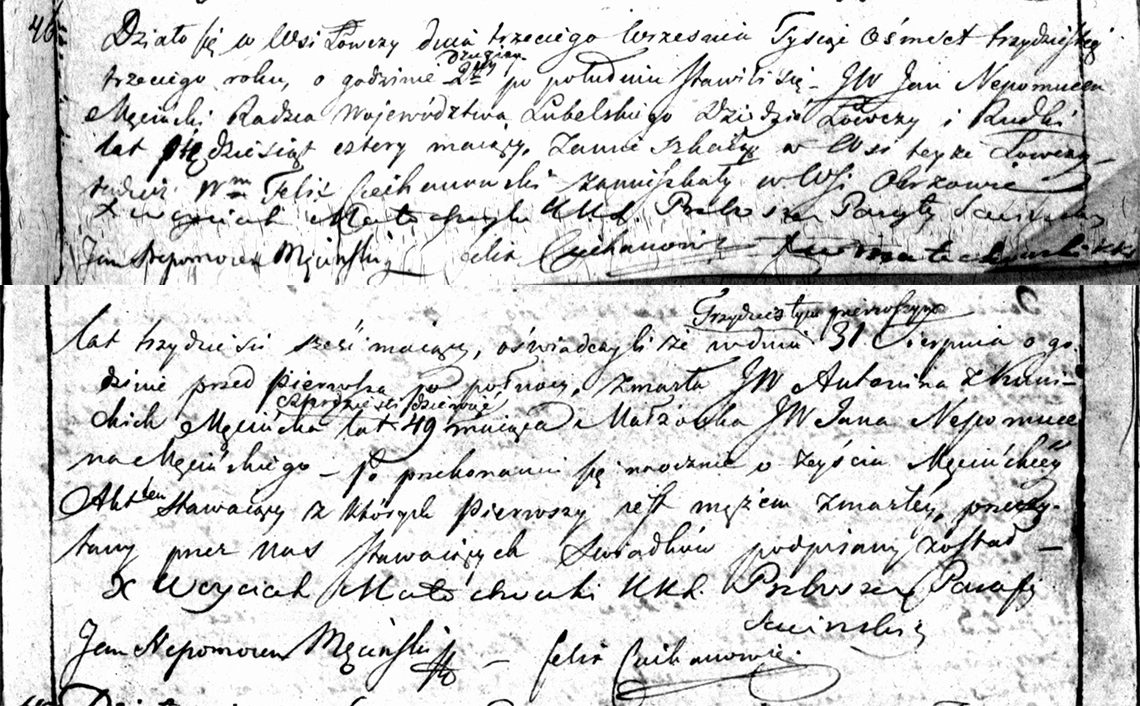 46
Działo się w Wsi Łowczy dnia trzeciego Września Tysiąc Ośmset trzydziestego
trzeciego roku, o godzinie drugiey 2giey po południu stawili się JW Jan Nepomucen
Męciński Radzca Województwa Lubelskiego Dziedzic Łowczy i Rudki
lat pięćdziesiąt cztery maiący, Zamieszkały w Wsi teyże Łowczy
tudzież Wm Felix Ciechanowski zamieszkały w Wsi
X Woyciech KKL. Proboszcz
Jan Nepomucen Męciński Felix Ciechanowicz
Trzydziestym pierwszym
lat trzydzieści sześć maiący, oświadczyli że w dniu 31 Sierpnia o go
dzinie przed pierwszą po północy, Zmarła JW Antonina z Kuni-
ckich Męcińska czterdzieści dziewięć lat 49 maiąca Małżonka JW Jana Nepomuce
na Męcińskiego – Po przekonaniu się naocznie o zeyściu Męcińskiey
Akt ten Stawaiący z których Pierwszy iest mężem Zmarłey, przeczy-
tany przez Nas stawaiących Swiadków podpisany został –
X Woyciech KKL. Proboszcz Parafij
Jan Nepomucen Męciński – Felix Ciechanowicz